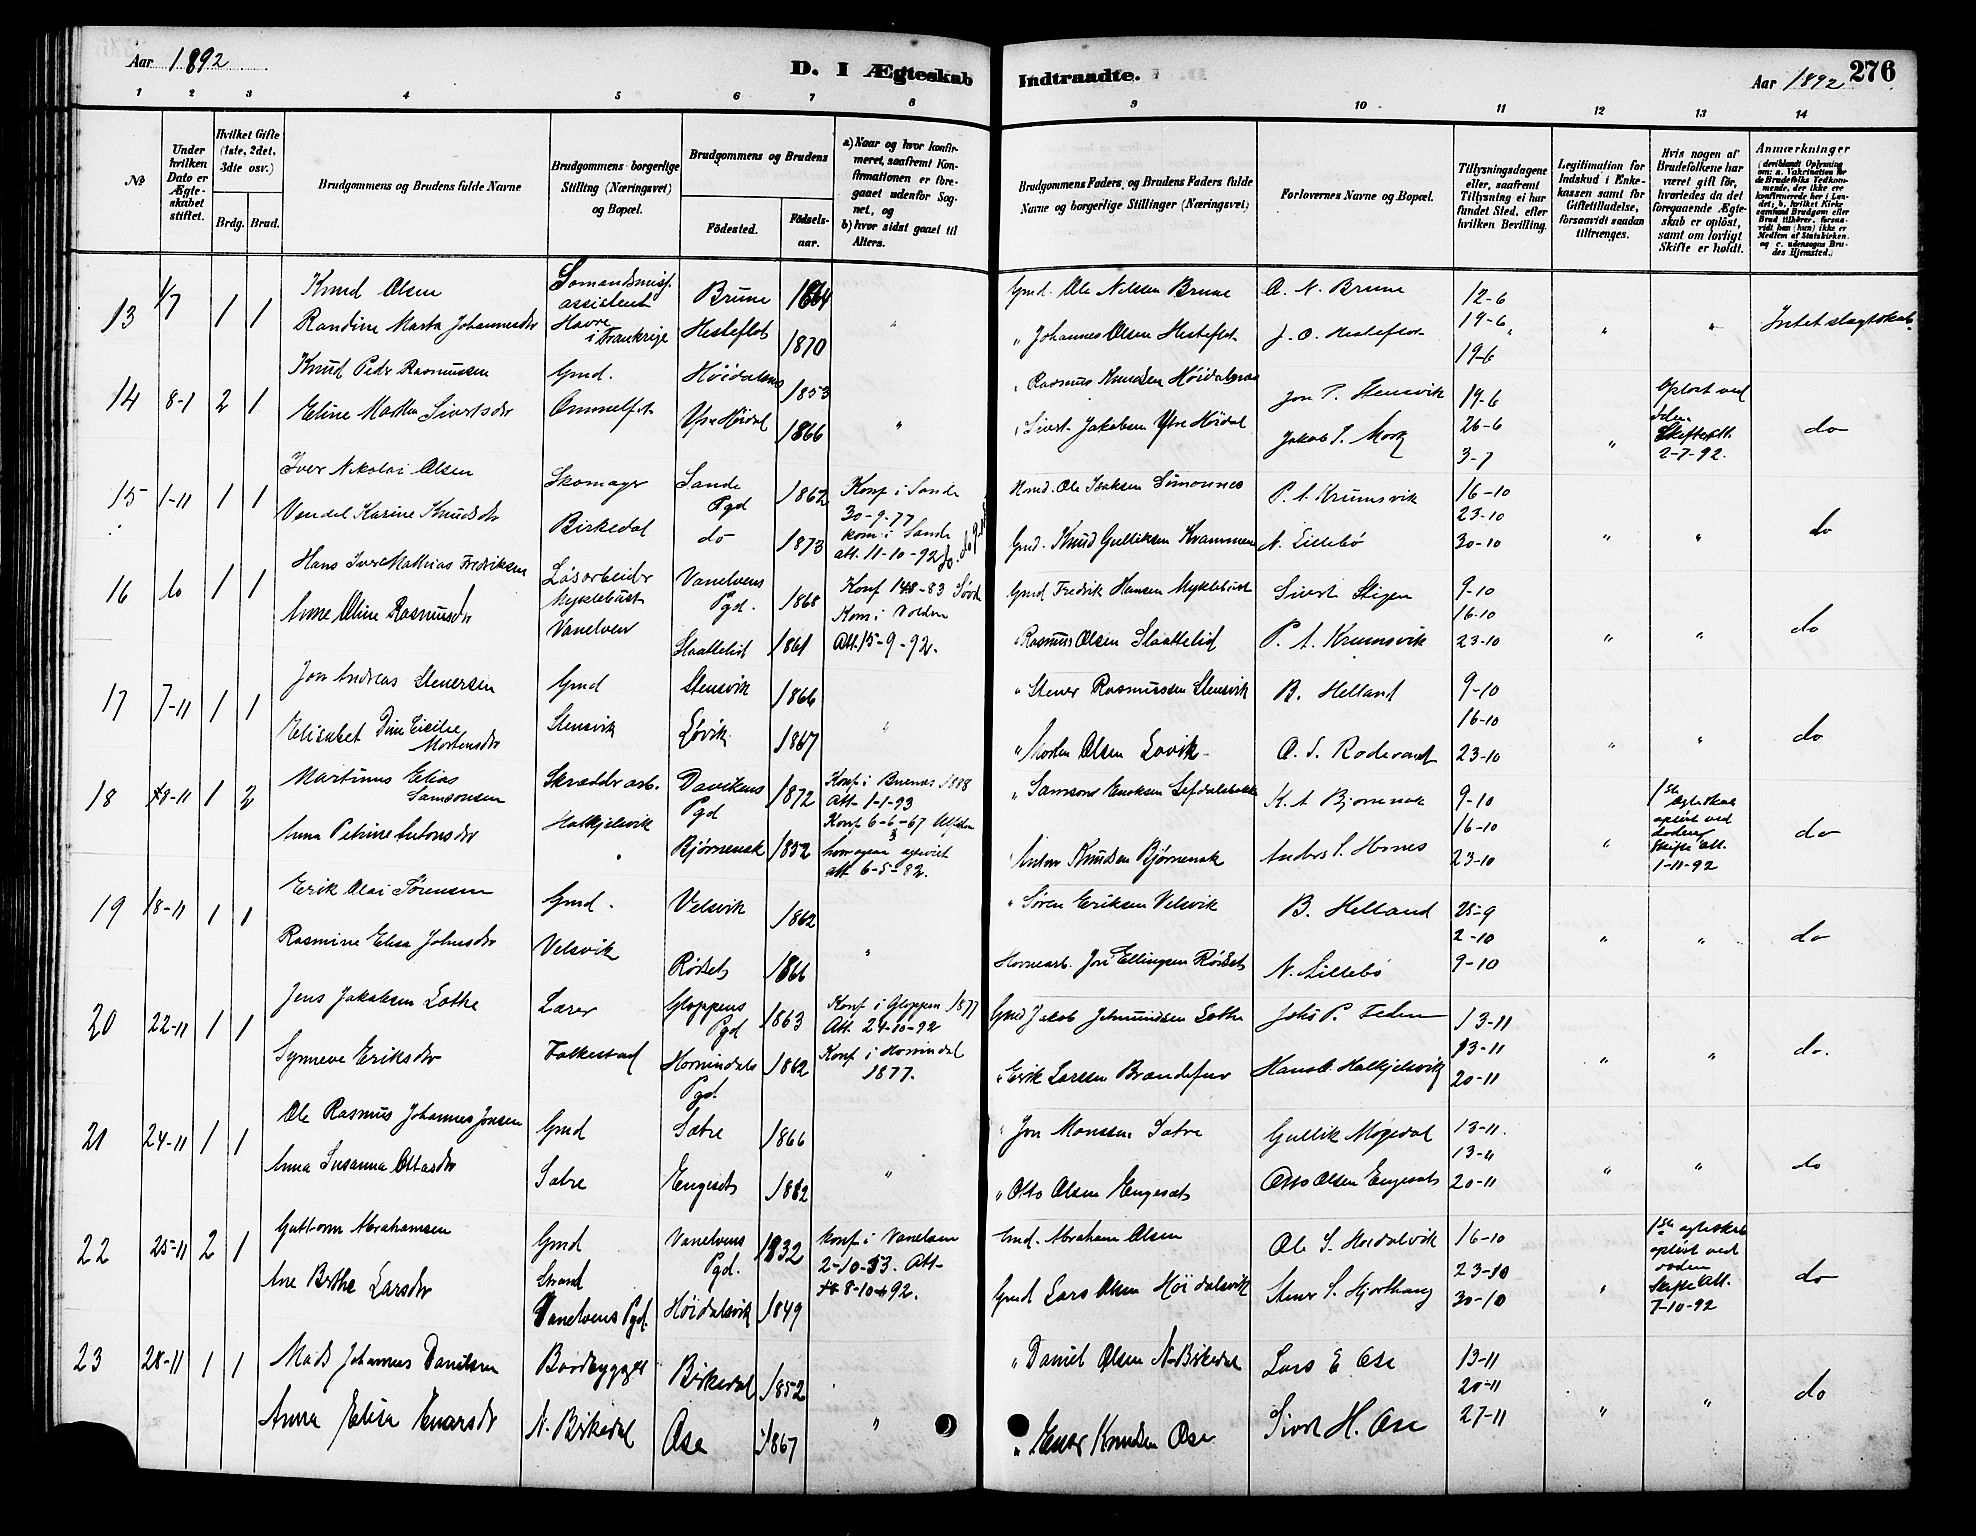 Aar 1892
D. I Ægteskab
Indtraadte.
Aar 1892
276
1 2 3 4 5 6 7 8 9 10 11 12 13 14
№
Under hvilken Dato er Ægteskabet stiftet.
Hvilket Gifte (1ste, 2det, 3dte osv.)
Brdg. Brud.
Brudgommens og Brudens fulde Navne
Brudgommens borgerlige Stilling (Næringsvei) og Bopæl.
Brudgommens og Brudens
Fødested.
Fødselsaar.
a) Naar og hvor konfirmeret, saafremt Konfirmationen er foregaaet udenfor Sognet, og
b) hvor sidst gaaet til Alters.
Brudgommens Faders og Brudens Faders fulde Navne og borgerlige Stillinger (Næringsvei)
Forlovernes Navne og Bopæl.
Tillysningsdagene eller, saafremt Tillysning ei har fundet Sted, efter hvilken Bevilling.
Legitimation for Indskud i Enkekassen samt for Giftetilladelse, forsaavidt saadan tiltrænges.
Hvis nogen af Brudefolkene har været gift før, hvorledes da det foregaaende Ægteskab er opløst, samt om lovligt Skifte er holdt.
Anmærkninger
13 1/7 1 1 Knud Olsen Sømandsmisj. assistent Brune 1864 Gmd. Ole Nilssen Brune O. N. Brune 12-6
Randine Marta Johannesdtr Havre i Frankrige Hesteflot 1870 " " Johannes Olsen Hesteflot J. O. Hesteflot 19-6 " " Intet slægtskab
19-6
14 8-1 2 1 Knud Peder Rasmussen Gmd. Høidalsnes 1853 " Rasmus Knudsen Høidalsnes Jon P. Stensvik 19-6 Opløst ved døden
Eline Marthe Sivertsdtr Ommelfot Ytre Høidal 1866 " " Sivert Jakobsen Ytre Høidal Jakob S. Mork 26-6 " Skifteatt. do
3-7 2-7-92.
15 1-11 1 1 Iver Nikolai Olsen Skomager Sande Pgd 1862 Konf i Sande 30-9-77 Hmd. Ole Isaksen Simonnes P. A. Krumsvik 16-10
23-10
Vendel Karine Knudsdtr Birkedal do 1873 kom i Sande att. 11-10-92 Gmd. Knud Gulliksen Krammen N. Lillebø 30-10 " " do
16 do 1 1 Hans Iver Mathias Fredriksen Løsarbeider Myklebust Vanelvens Pgd. 1868 Konf Gmd Fredrik Hansen Myklebust Sivert Stigen 9-10
16-10
Anne Oline Rasmusdtr Vanelven Slaattelid 1861 Kom i Volden Att. 15-9-92. " Rasmus Olsen Slaattelid P. A. Krumsvik 23-10 " " do
17 7-11 1 1 Jon Andreas Stenersen Gmd Stensvik 1866 " Stener Rasmussen Stensvik B. Helland 9-10
16-10
Elisabet Dine Cicilie Mortensdtr Stensvik Løvik 1867 " " Morten Olsen Løvik O. S. Rodevand 23-10 " " do
18 18-11 1 2 Martinus Elias Samsonsen Skrædder arb. Davikens Pgd 1872 Konf i Bremnes 1888 Att. 1-1-93 " Samson K. A Bjørnenak 9-10 1ste ægteskab
16-10 opløst ved døden
Anna Petrine Antonsdtr Halkjelsvik Bjørnenak 1852 Konf 6-6-67 att 6-5-82. " Anton Knudsen Bjørnenak Anders S. Hovnes 23-10 " Skifte att. 1-11-92 do
19 18-11 1 1 Erik Olai Sørensen Gmd. Velsvik 1862 " Søren Eriksen Velsvik B. Helland 25-9
2-10
Rasmine Elisa Johnsdtr Velsvik Rødset 1866 " Hovnearb. Jon Ellingsen Rødset N. Lillebø 9-10 " " do
20 22-11 1 1 Jens Jakobsen Lothe Lærer Gloppens Pgd 1863 Konf i Gloppen 1877 Att. 24-10-92 Gmd Jakob Lothe Johs P. 13-11
13-11
Synneve Eriksdtr Folkestad Hornindals Pgd 1862 Konf i Hornindal 1877. " Erik Larssen Hans O. Halkjelsvik 20-11 " " do.
21 24-11 1 1 Ole Rasmus Johannes Jonsen Gmd Sætre 1866 " Jon Monssen Sætre Gullik Mogedal 13-11.
13-11
Anna Susanna Ottosdtr Sætre Engeset 1862 " " Otto Olsen Engeset Otto Olsen Engeset 20-11 " " do
22 25-11 2 1 Guttorm Abrahamsen Gmd Vanelvens Pgd. 1832 Konf i Vanelven 2-10-53. Att. 8-10-92. Gmd. Abraham Olsen Ole S. Høidalsvik 16-10 1ste ægteskab
23-10 opløst ved døden
Ane Berthe Larsdtr Strand Vanelvens Pgd. Høidalsvik 1849 Gmd Lars Olsen Høidalsvik Stener S. Hjorthaug 30-10 " Skifte Att. 7-10-92 do
23 28-11 1 1 Mads Johannes Danielsen Baadbygger Birkedal 1852 " Daniel Olsen N-Birkedal Lars E Ose 13-11
20-11
Anna Elisa Enarsdtr N. Birkedal Ose 1867 " " Enar Knudsen Ose Sivert H. Ose 27-11 " " do